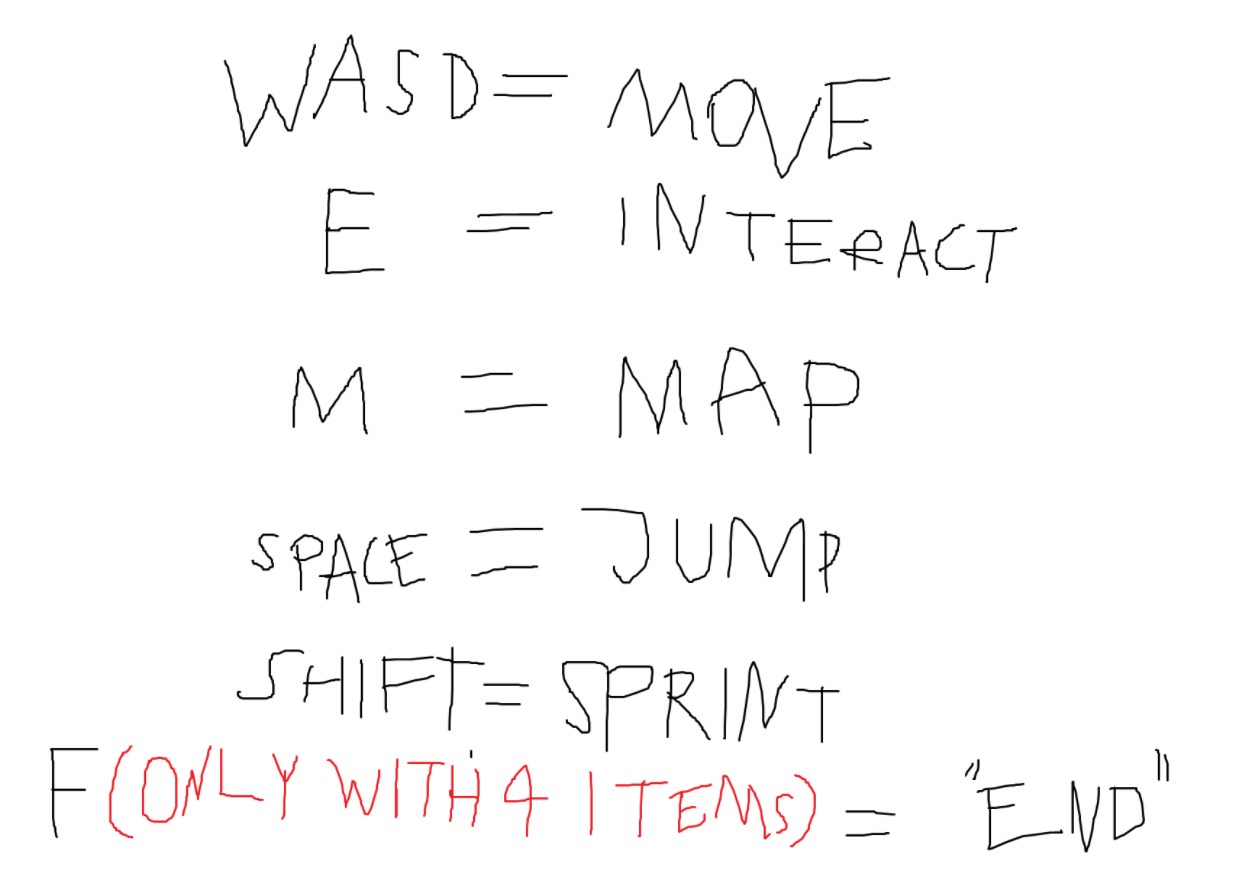 WASD = MOVE
E = INTERACT
M = MAP
SPACE = JUMP
SHIFT = SPRINT
F (ONLY WITH 4 ITEMS) = "END"